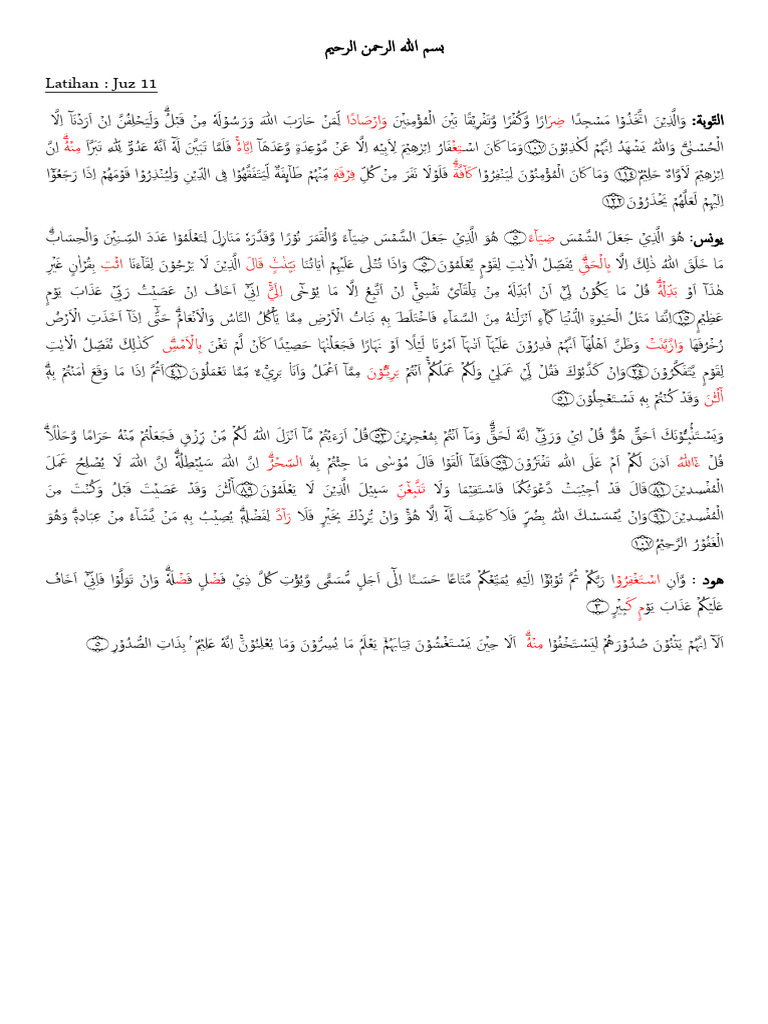 بسم الله الرحمن الرحيم
Latihan : Juz 11
التّوبة: وَالَّذِيْنَ اتَّخَذُوْا مَسْجِدًا ضِرَارًا وَّكُفْرًا وَّتَفْرِيْقًا بَيْنَ الْمُؤْمِنِيْنَ وَاِرْصَادًا لِّمَنْ حَارَبَ اللّٰهَ وَرَسُوْلَهٗ مِنْ قَبْلُ ۗوَلَيَحْلِفُنَّ اِنْ اَرَدْنَآ اِلَّا
الْحُسْنٰىۗ وَاللّٰهُ يَشْهَدُ اِنَّهُمْ لَكٰذِبُوْنَ ﴿١٠٧﴾ وَمَا كَانَ اسْتِغْفَارُ اِبْرٰهِيْمَ لِاَبِيْهِ اِلَّا عَنْ مَّوْعِدَةٍ وَّعَدَهَآ اِيَّاهُۚ فَلَمَّا تَبَيَّنَ لَهٗٓ اَنَّهٗ عَدُوٌّ لِّلّٰهِ تَبَرَّاَ مِنْهُۗ اِنَّ
اِبْرٰهِيْمَ لَاَوَّاهٌ حَلِيْمٌ ﴿١١٤﴾ وَمَا كَانَ الْمُؤْمِنُوْنَ لِيَنْفِرُوْا كَاۤفَّةًۗ فَلَوْلَا نَفَرَ مِنْ كُلِّ فِرْقَةٍ مِّنْهُمْ طَاۤىِٕفَةٌ لِّيَتَفَقَّهُوْا فِى الدِّيْنِ وَلِيُنْذِرُوْا قَوْمَهُمْ اِذَا رَجَعُوْٓا
اِلَيْهِمْ لَعَلَّهُمْ يَحْذَرُوْنَ ﴿١٢٢﴾
يونس: هُوَ الَّذِيْ جَعَلَ الشَّمْسَ ضِيَاۤءً ﴿٥﴾ هُوَ الَّذِيْ جَعَلَ الشَّمْسَ ضِيَاۤءً وَّالْقَمَرَ نُوْرًا وَّقَدَّرَهٗ مَنَازِلَ لِتَعْلَمُوْا عَدَدَ السِّنِيْنَ وَالْحِسَابَۗ
مَا خَلَقَ اللّٰهُ ذٰلِكَ اِلَّا بِالْحَقِّۗ يُفَصِّلُ الْاٰيٰتِ لِقَوْمٍ يَّعْلَمُوْنَ ﴿٥﴾ وَاِذَا تُتْلٰى عَلَيْهِمْ اٰيَاتُنَا بَيِّنٰتٍۙ قَالَ الَّذِيْنَ لَا يَرْجُوْنَ لِقَاۤءَنَا ائْتِ بِقُرْاٰنٍ غَيْرِ
هٰذَآ اَوْ بَدِّلْهُۗ قُلْ مَا يَكُوْنُ لِيْٓ اَنْ اُبَدِّلَهٗ مِنْ تِلْقَاۤئِ نَفْسِيْۚ اِنْ اَتَّبِعُ اِلَّا مَا يُوْحٰٓى اِلَيَّۚ اِنِّيْٓ اَخَافُ اِنْ عَصَيْتُ رَبِّيْ عَذَابَ يَوْمٍ
عَظِيْمٍ ﴿١٥﴾ اِنَّمَا مَثَلُ الْحَيٰوةِ الدُّنْيَا كَمَاۤءٍ اَنْزَلْنٰهُ مِنَ السَّمَاۤءِ فَاخْتَلَطَ بِهٖ نَبَاتُ الْاَرْضِ مِمَّا يَأْكُلُ النَّاسُ وَالْاَنْعَامُۗ حَتّٰٓى اِذَآ اَخَذَتِ الْاَرْضُ
زُخْرُفَهَا وَازَّيَّنَتْ وَظَنَّ اَهْلُهَآ اَنَّهُمْ قٰدِرُوْنَ عَلَيْهَآ اَتٰىهَآ اَمْرُنَا لَيْلًا اَوْ نَهَارًا فَجَعَلْنٰهَا حَصِيْدًا كَاَنْ لَّمْ تَغْنَ بِالْاَمْسِۗ كَذٰلِكَ نُفَصِّلُ الْاٰيٰتِ
لِقَوْمٍ يَّتَفَكَّرُوْنَ ﴿٢٤﴾ وَاِنْ كَذَّبُوْكَ فَقُلْ لِّيْ عَمَلِيْ وَلَكُمْ عَمَلُكُمْۚ اَنْتُمْ بَرِيْۤـُٔوْنَ مِمَّآ اَعْمَلُ وَاَنَا۠ بَرِيْۤءٌ مِّمَّا تَعْمَلُوْنَ ﴿٤١﴾ اَثُمَّ اِذَا مَا وَقَعَ اٰمَنْتُمْ بِهٖۗ
اٰۤلْـٰٔنَ وَقَدْ كُنْتُمْ بِهٖ تَسْتَعْجِلُوْنَ ﴿٥١﴾
وَيَسْتَنْۢبِـُٔوْنَكَ اَحَقٌّ هُوَۗ قُلْ اِيْ وَرَبِّيْٓ اِنَّهٗ لَحَقٌّۗ وَمَآ اَنْتُمْ بِمُعْجِزِيْنَ ﴿٥٣﴾ قُلْ اَرَءَيْتُمْ مَّآ اَنْزَلَ اللّٰهُ لَكُمْ مِّنْ رِّزْقٍ فَجَعَلْتُمْ مِّنْهُ حَرَامًا وَّحَلٰلًاۗ
قُلْ ءٰۤاللّٰهُ اَذِنَ لَكُمْ اَمْ عَلَى اللّٰهِ تَفْتَرُوْنَ ﴿٥٩﴾ فَلَمَّآ اَلْقَوْا قَالَ مُوْسٰى مَا جِئْتُمْ بِهِۙ السِّحْرُۗ اِنَّ اللّٰهَ سَيُبْطِلُهٗۗ اِنَّ اللّٰهَ لَا يُصْلِحُ عَمَلَ
الْمُفْسِدِيْنَ ﴿٨١﴾ قَالَ قَدْ اُجِيْبَتْ دَّعْوَتُكُمَا فَاسْتَقِيْمَا وَلَا تَتَّبِعٰۤنِّ سَبِيْلَ الَّذِيْنَ لَا يَعْلَمُوْنَ ﴿٨٩﴾ اٰۤلْـٰٔنَ وَقَدْ عَصَيْتَ قَبْلُ وَكُنْتَ مِنَ
الْمُفْسِدِيْنَ ﴿٩١﴾ وَاِنْ يَّمْسَسْكَ اللّٰهُ بِضُرٍّ فَلَا كَاشِفَ لَهٗٓ اِلَّا هُوَۚ وَاِنْ يُّرِدْكَ بِخَيْرٍ فَلَا رَاۤدَّ لِفَضْلِهٖۗ يُصِيْبُ بِهٖ مَنْ يَّشَاۤءُ مِنْ عِبَادِهٖۗ وَهُوَ
الْغَفُوْرُ الرَّحِيْمُ ﴿١٠٧﴾
هود : وَّاَنِ اسْتَغْفِرُوْا رَبَّكُمْ ثُمَّ تُوْبُوْٓا اِلَيْهِ يُمَتِّعْكُمْ مَّتَاعًا حَسَنًا اِلٰٓى اَجَلٍ مُّسَمًّى وَّيُؤْتِ كُلَّ ذِيْ فَضْلٍ فَضْلَهٗۗ وَاِنْ تَوَلَّوْا فَاِنِّيْٓ اَخَافُ
عَلَيْكُمْ عَذَابَ يَوْمٍ كَبِيْرٍ ﴿٣﴾
اَلَآ اِنَّهُمْ يَثْنُوْنَ صُدُوْرَهُمْ لِيَسْتَخْفُوْا مِنْهُۗ اَلَا حِيْنَ يَسْتَغْشُوْنَ ثِيَابَهُمْۙ يَعْلَمُ مَا يُسِرُّوْنَ وَمَا يُعْلِنُوْنَۚ اِنَّهٗ عَلِيْمٌ ۢ بِذَاتِ الصُّدُوْرِ ﴿٥﴾